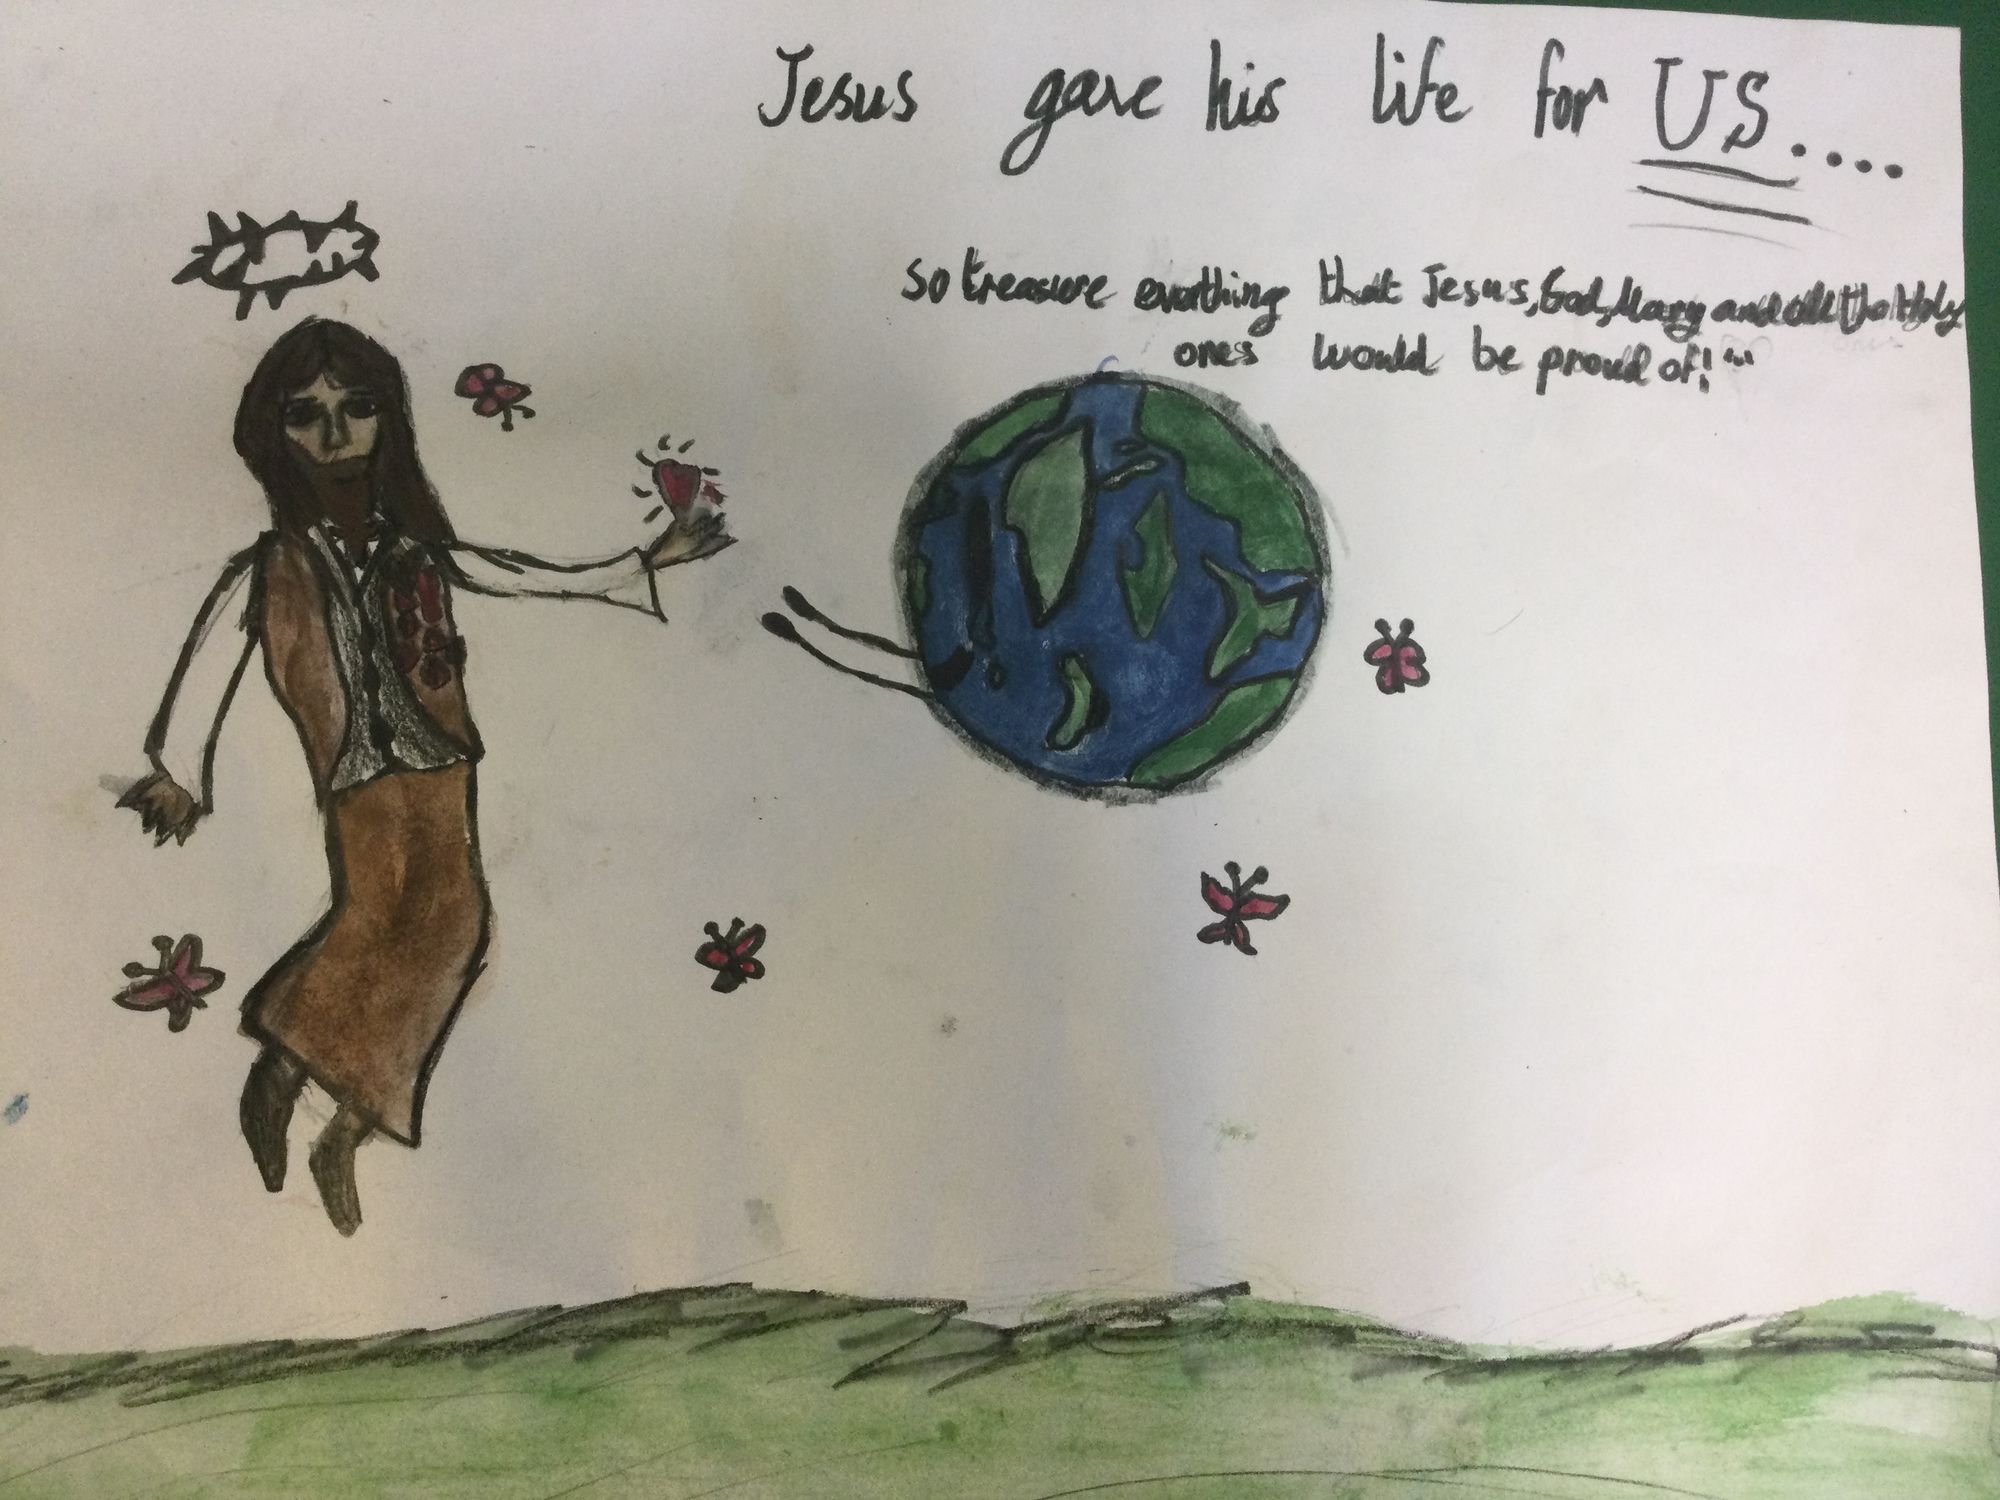 Jesus gave his life for US....
so treasure everthing that Jesus, God, Mary and all the Holy
ones would be proud of!"'